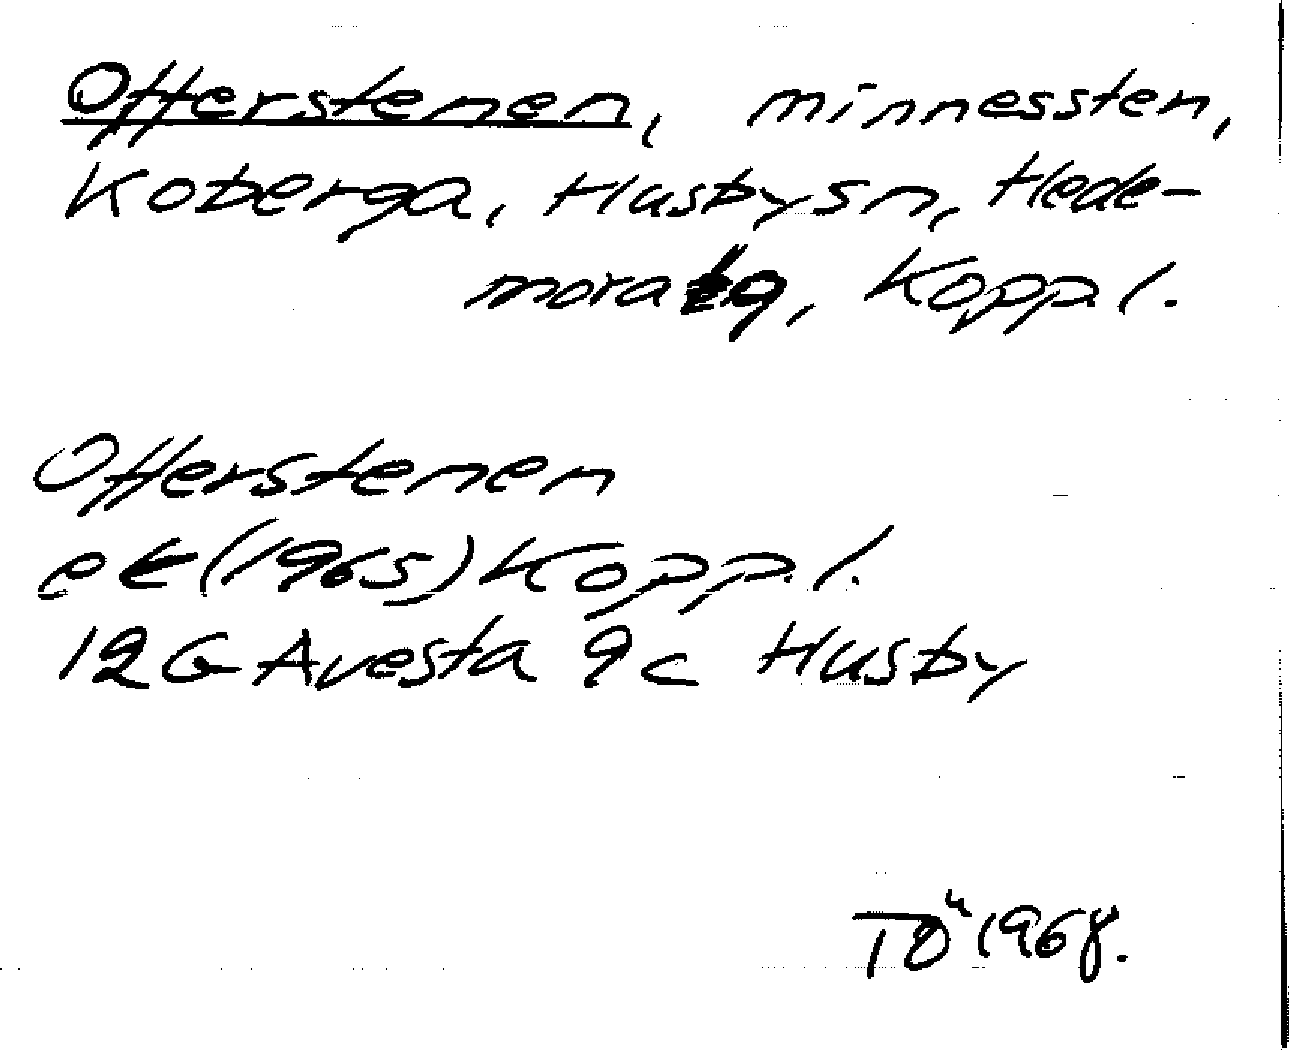 Offerstenen, minnessten,
Koberga, Husby sn, Hede-
mora tg, Kopp. l.
Offerstenen
ek (1965) Kopp. l.
12G Avesta 9c Husby
TÖ 1968.